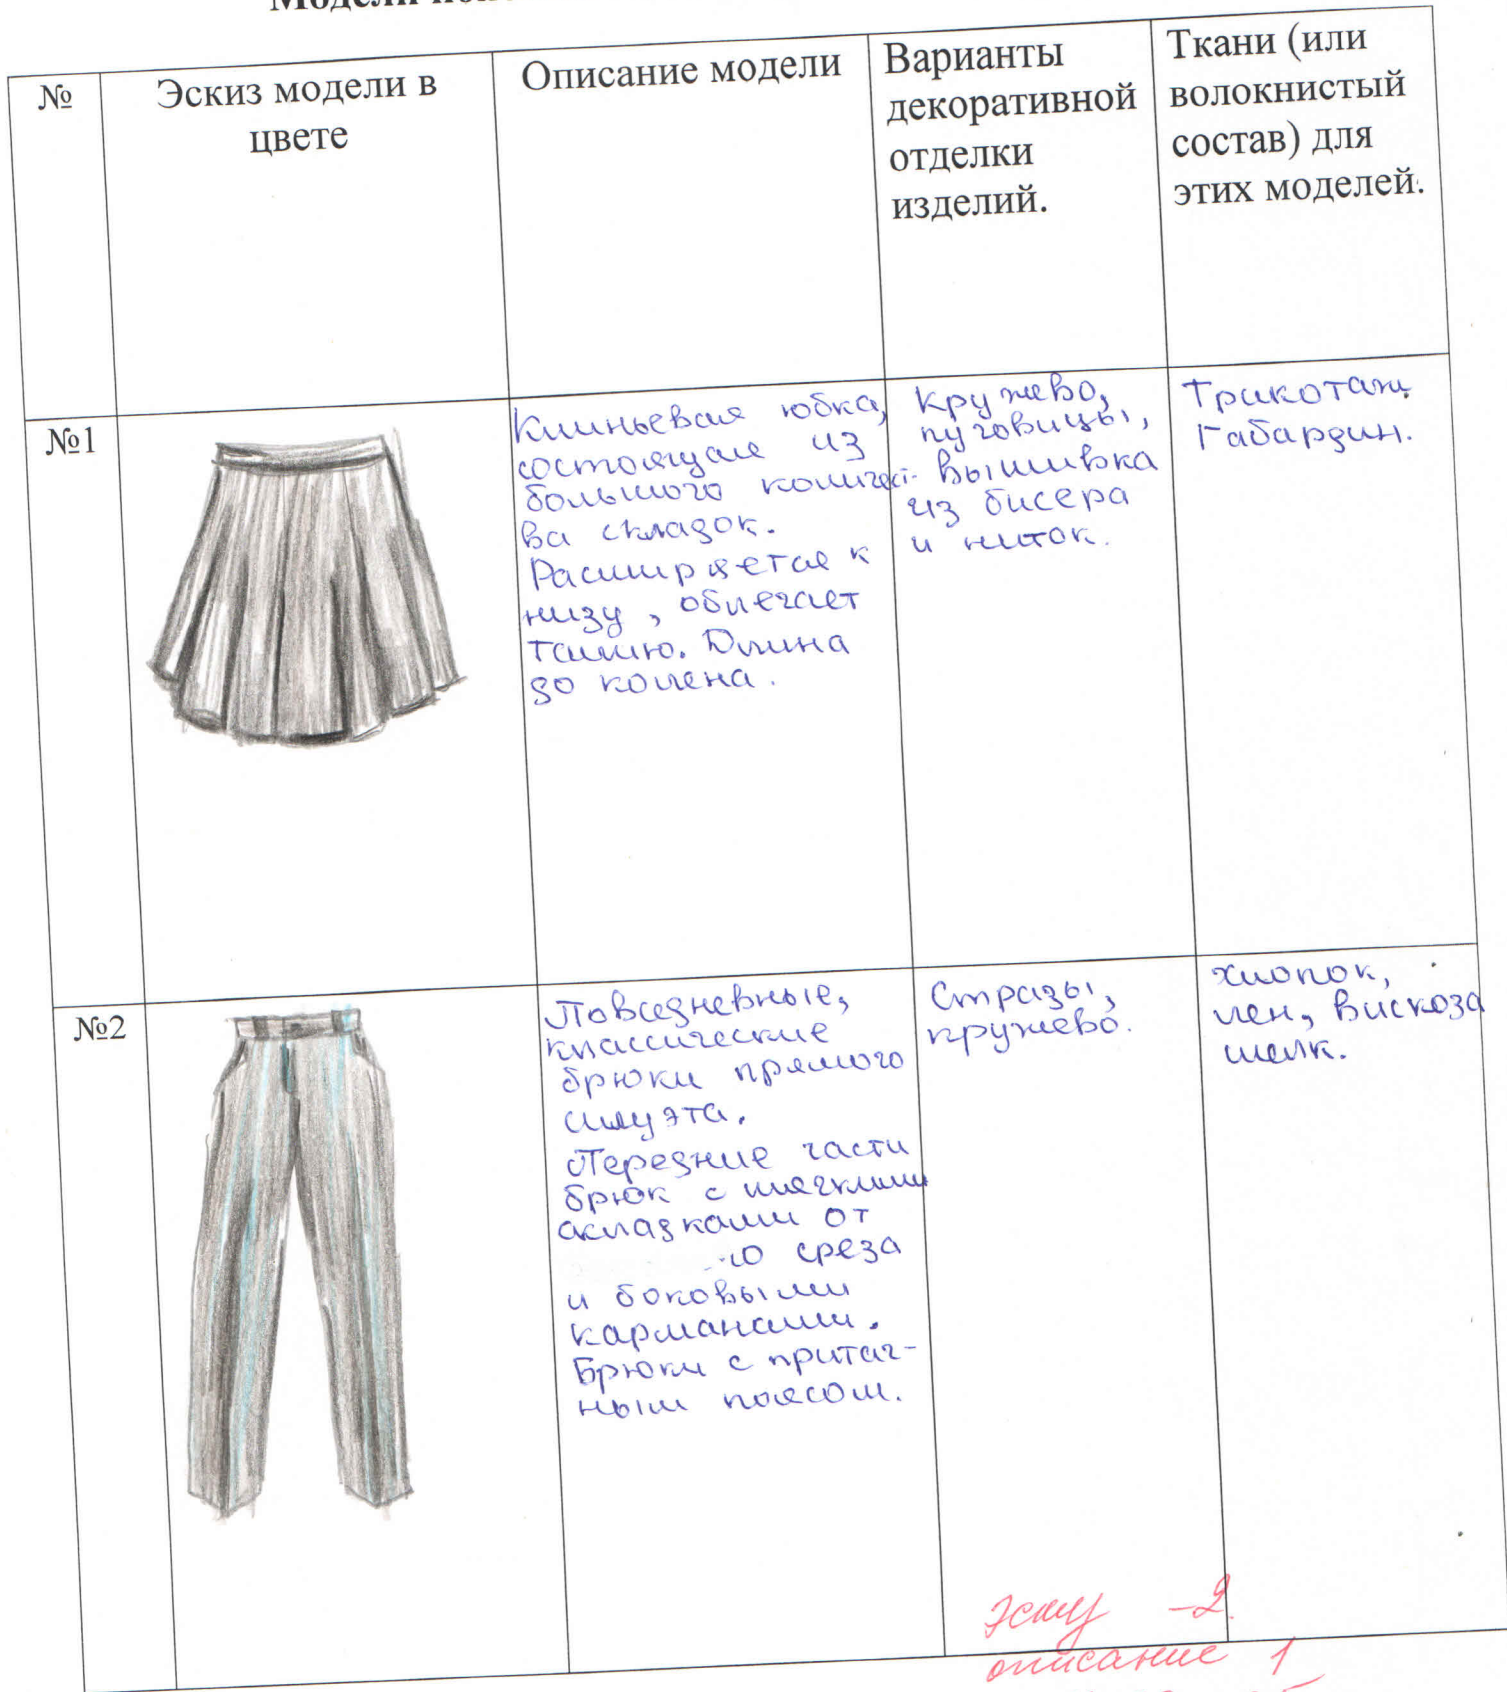 Модели
№
Эскиз модели в
цвете
Описание модели
Варианты
декоративной
отделки
изделий.
Ткани (или
волокнистый
состав) для
этих моделей.
№1
Клиньевая юбка,
состоящая из
большого количест-
ва складок.
Расширяется к
низу, облегает
талию. Длина
до колена.
Кружево,
пуговицы,
вышивка
из бисера
и ниток.
Трикотаж,
Габардин.
№2
Повседневные,
классические
брюки прямого
силуэта.
Передние части
брюк с мягкими
складками от
среза
и боковыми
карманами.
Брюки с притач-
ным поясом.
Стразы,
кружево.
хлопок,
лен, вискоза
шелк.
-2.
описание 1